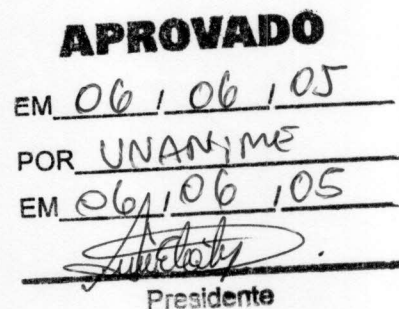 APROVADO
EM 06 / 06 / 05
POR UNANIME
EM 06 / 06 / 05
Presidente